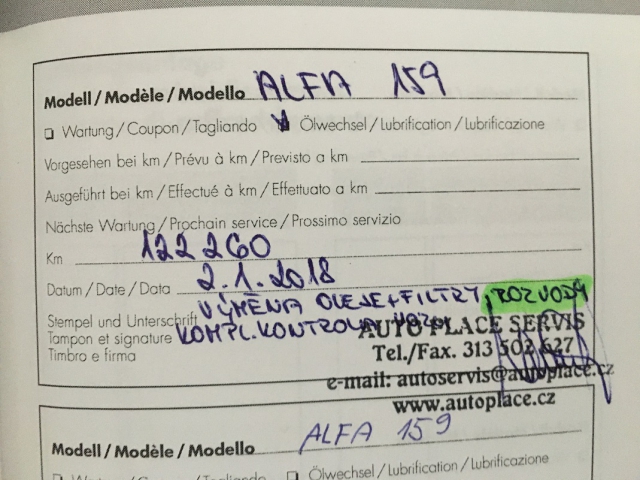 Modell / Modèle / Modello ALFA 159
Wartung / Coupon / Tagliando Ölwechsel / Lubrification / Lubrificazione
Vorgesehen bei km / Prévu à km / Previsto a km
Ausgeführt bei km / Effectué à km / Effettuato a km
Nächste Wartung / Prochain service / Prossimo servizio
Km 122 260
Datum / Date / Data 2.1.2018
VÝMĚNA OLEJE+FILTRY, ROZVODY
Stempel und Unterschrift KOMPL. KONTROLA VOZU
Tampon et signature
Timbro e firma
AUTO PLACE SERVIS
Tel./Fax. 313 502 627
e-mail: autoservis@autoplace.cz
www.autoplace.cz
Modell / Modèle / Modello ALFA 159
Ölwechsel / Lubrification / Lubrificazione